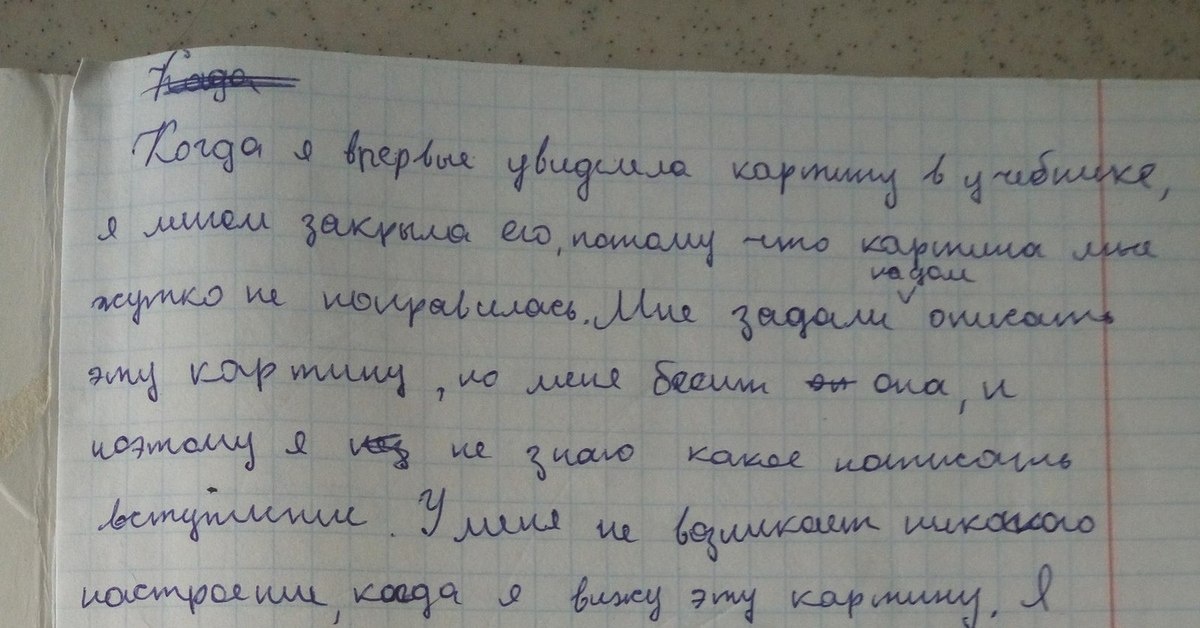 Када
Когда я впервые увидила картину в учебнике,
я мигом закрыла его, потому что картина мне
надом
жутко не понравилась. Мне задали описать
эту картину, но меня бесит он она, и
поэтому я не знаю какое написать
вступление. У меня не возникает никакого
настроение, когда я вижу эту картину. Я